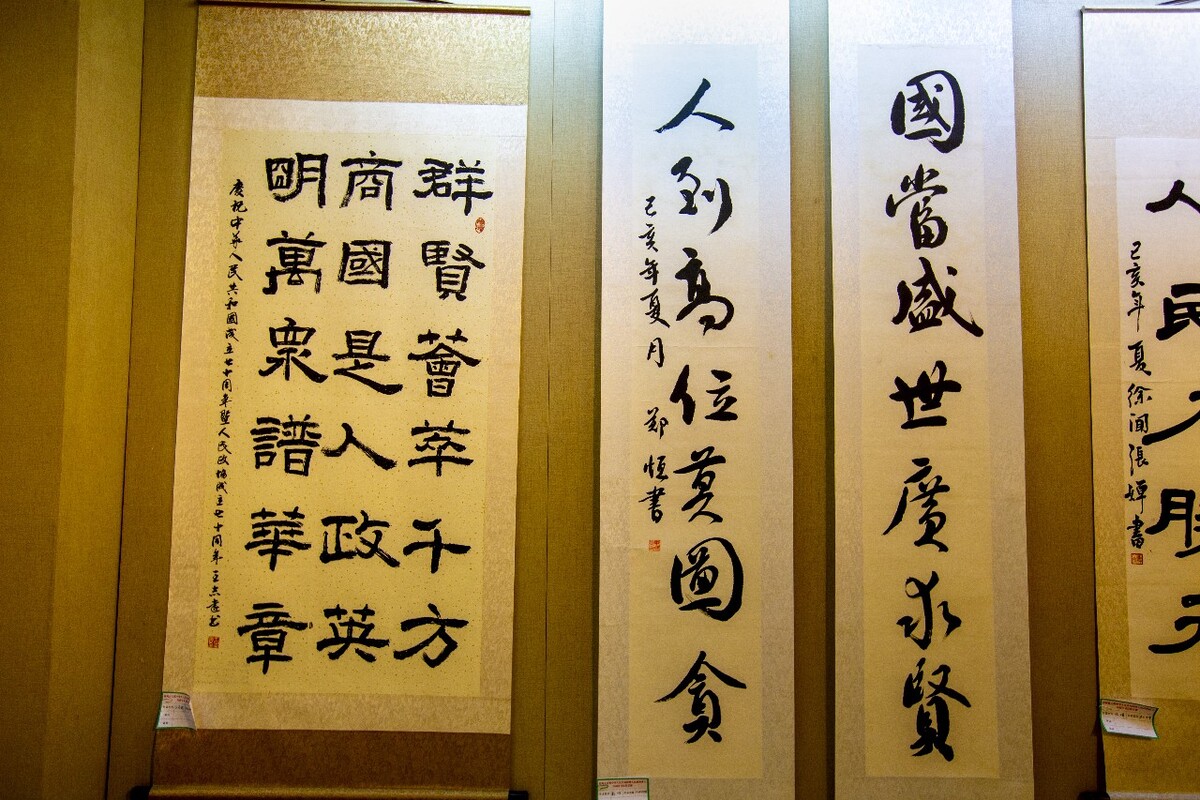 人民
己亥年夏徐闻張嬋書
國當盛世廣求賢
人到高位莫圖貪
己亥年夏月 郑恒書
群賢薈萃千方
商國是人政英
明萬衆譜華章
慶祝中華人民共和國成立七十周年暨人民政協成立七十周年